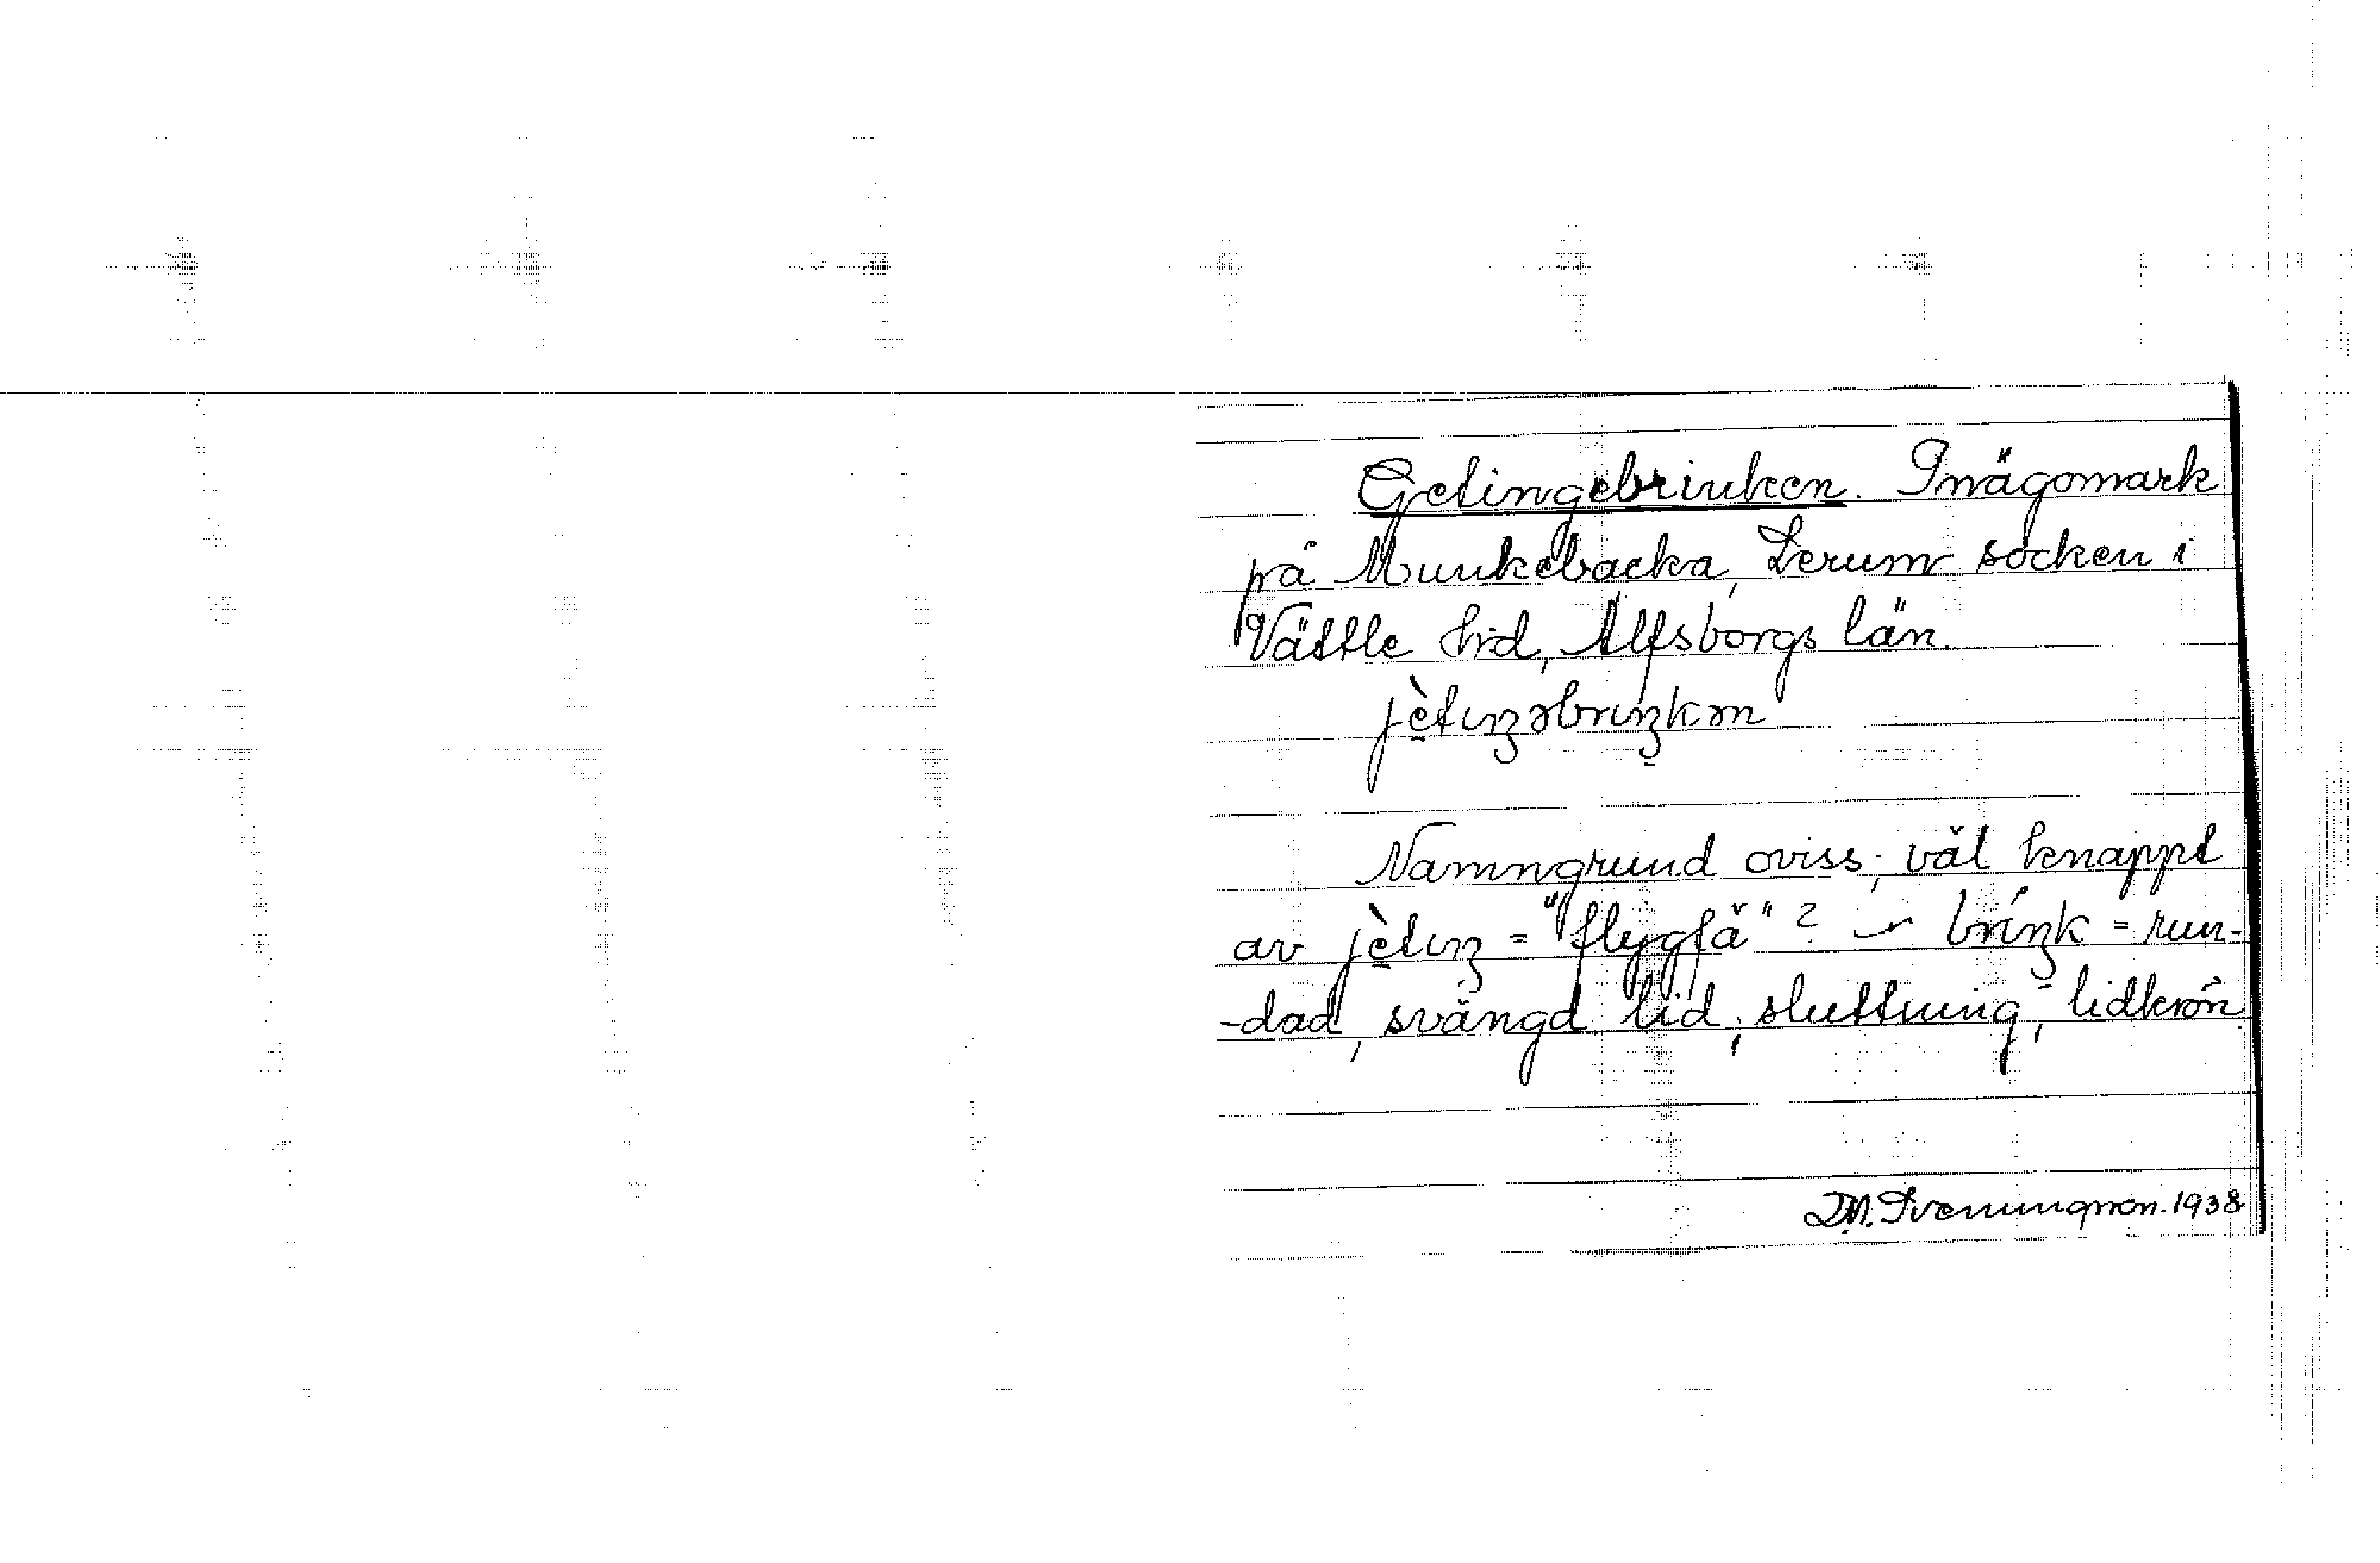 Getingebrinken. Inägomark
på Munkebacka, Lerum socken i
Vättle hd, Älfsborgs län.
jètıŋəbrıŋkən
Namngrund oviss; väl knappt
av jètıŋ = "flygfä"? ~ bríŋk = run-
-dad, svängd lid; sluttning, lidkrön.
D.N. Sveningsson. 1938